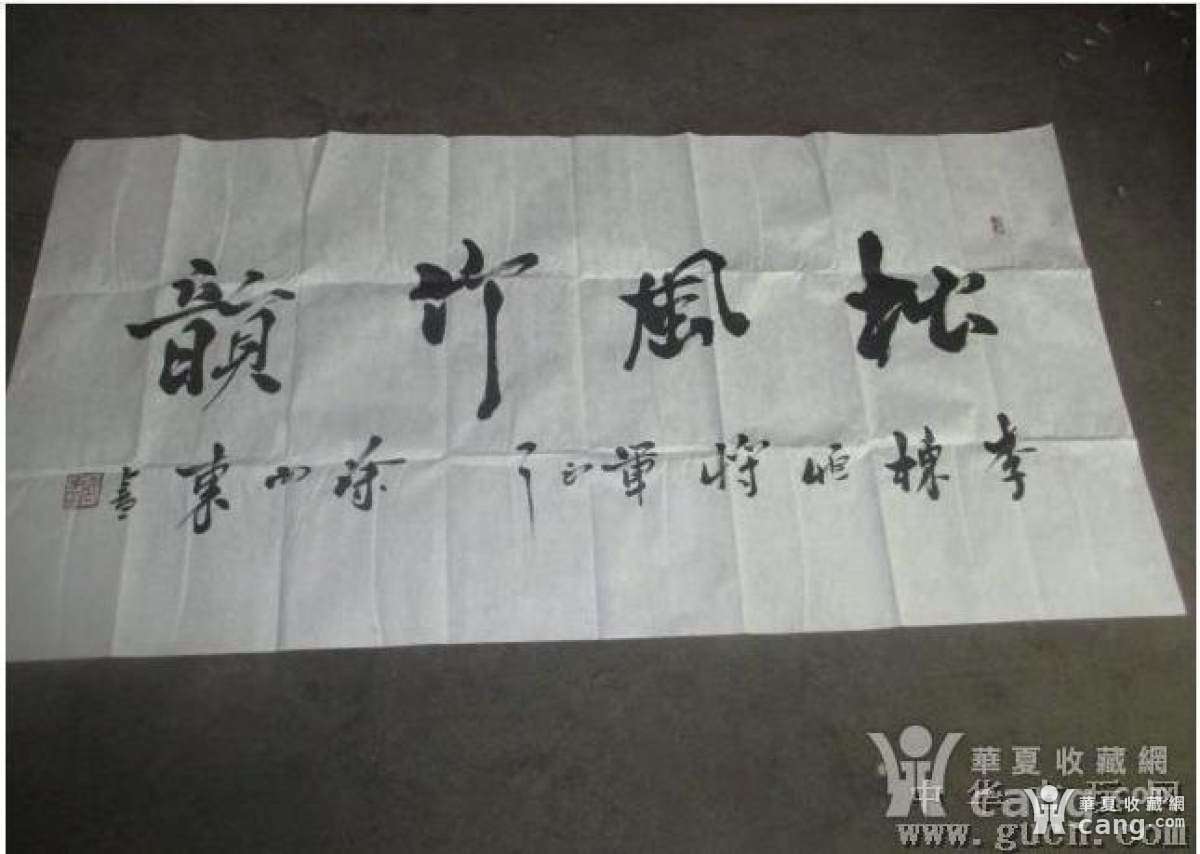 松風竹韻
李棟恒将軍正 徐小東
華夏收藏網
cang.com
華夏收藏網
cang.com
www.gucn.com